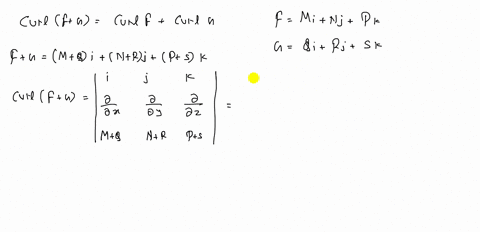 Curl (F+G) = Curl F + Curl G
F = Mi + Nj + Pk
G = Qi + Rj + Sk
F+G = (M+Q) i + (N+R) j + (P+S) k
Curl (F+G) = | i j k | =
∂/∂x ∂/∂y ∂/∂z
M+Q N+R P+S